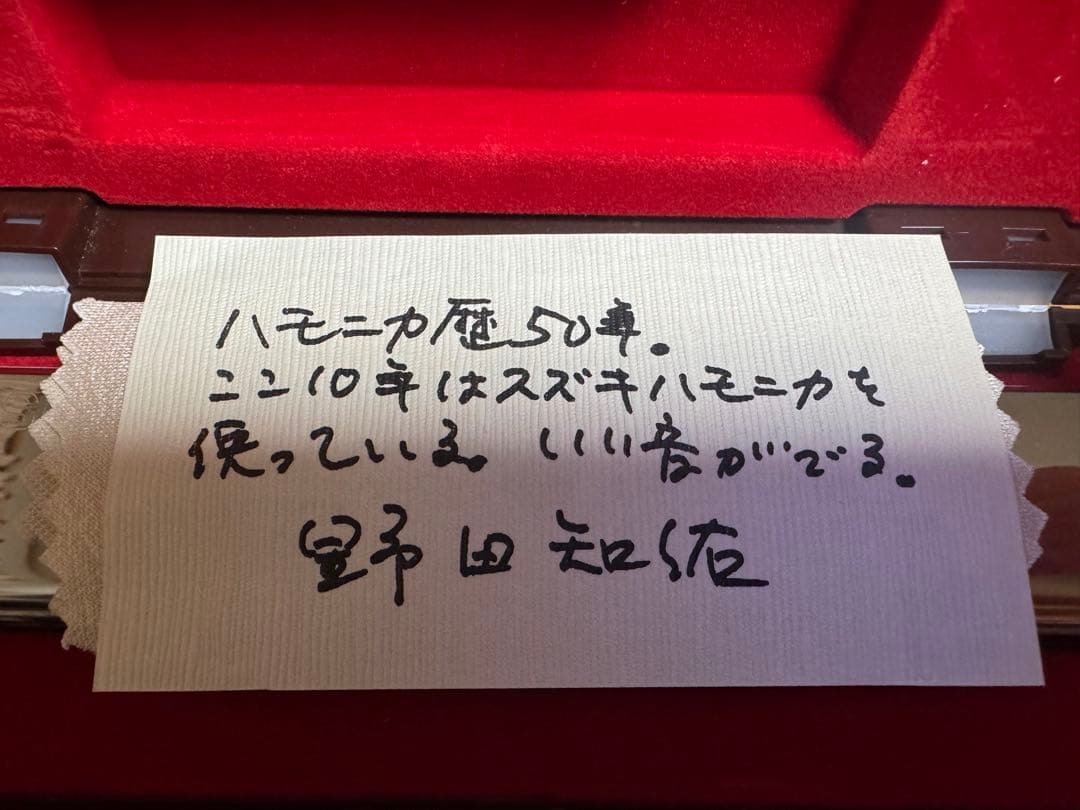 ハモニカ歴50年。
ここ10年はスズキハモニカを
使っている。いい音がでる。
野田知佑